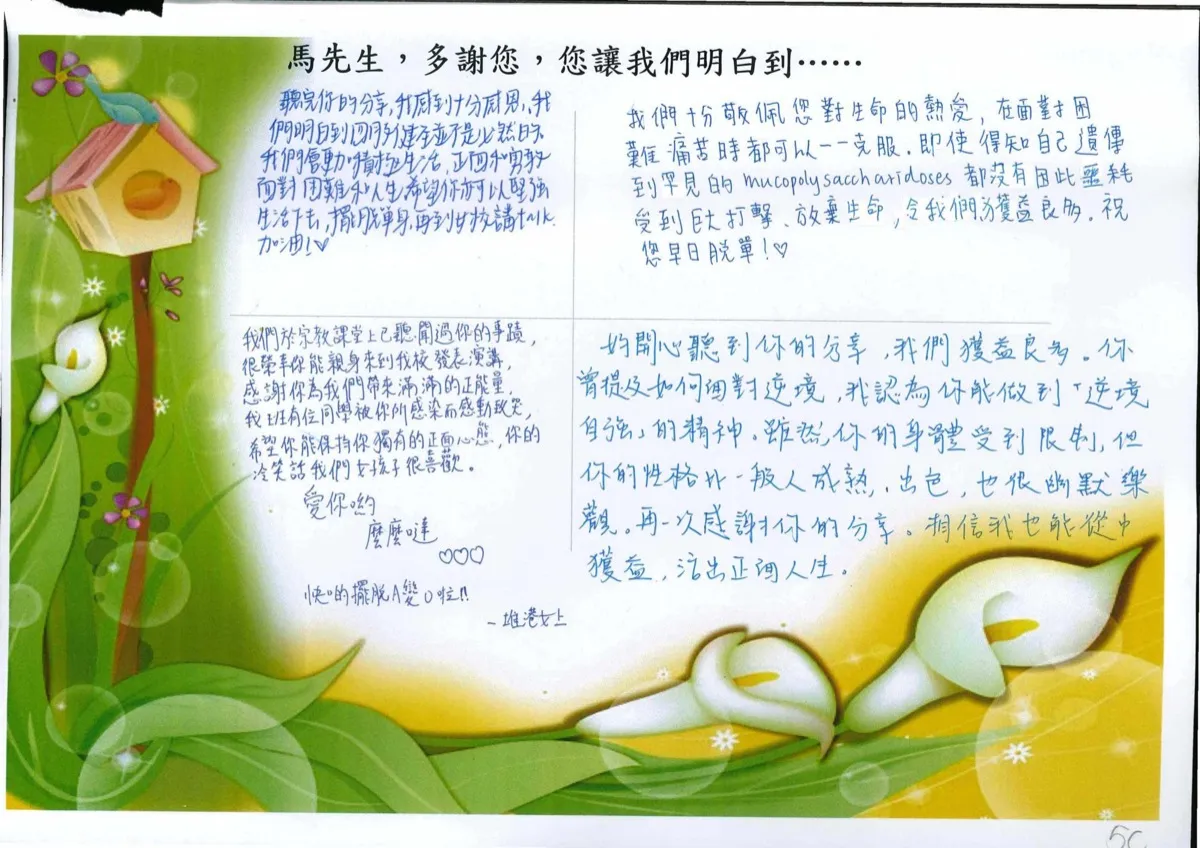 馬先生，多謝您，您讓我們明白到……
聽完你的分享,我感到十分感恩,我
們明白到四肢健全並不是必然的
我們會勇敢面對生活,正面和勇敢
面對困難和人生,希望你亦可以堅強
生活下去,擺脫單身,再到女校講talk.
加油!♡
我們十分敬佩您對生命的熱愛，在面對困
難痛苦時都可以一一克服.即使得知自己遺傳
到罕見的mucopolysaccharidoses都沒有因此噩耗
受到巨大打擊、放棄生命,令我們獲益良多.祝
您早日脫單!♡
我們於宗教課堂上已聽聞過你的事蹟，
很榮幸你能親身來到我校發表演講，
感謝你為我們帶來滿滿的正能量.
我班有位同學被你所感染而感動致哭，
希望你能保持你獨有的正面心態,你的
冷笑話我們女孩子很喜歡。
愛你喲
麼麼噠
♡♡♡
快啲擺脫A變0啦!!
妳開心聽到你的分享,我們獲益良多。你
曾提及如何面對逆境,我認為你能做到「逆境
自強」的精神。雖然,你的身體受到限制,但
你的性格比一般人成熟.出色,也很幽默樂
觀。再一次感謝你的分享。相信我也能從中
獲益,活出正面人生。
5C